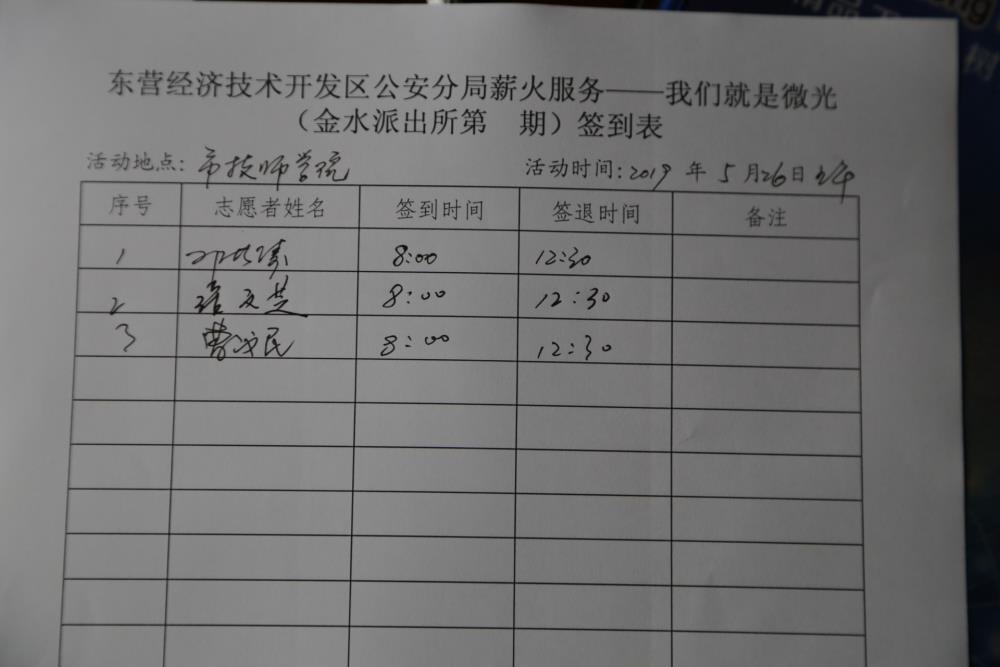 东营经济技术开发区公安分局薪火服务——我们就是微光
（金水派出所第　期）签到表
活动地点：市技师学院 活动时间：2019 年 5 月 26 日
序号 志愿者姓名 签到时间 签退时间 备注
1 8:00 12:30
2 8:00 12:30
3 8:00 12:30